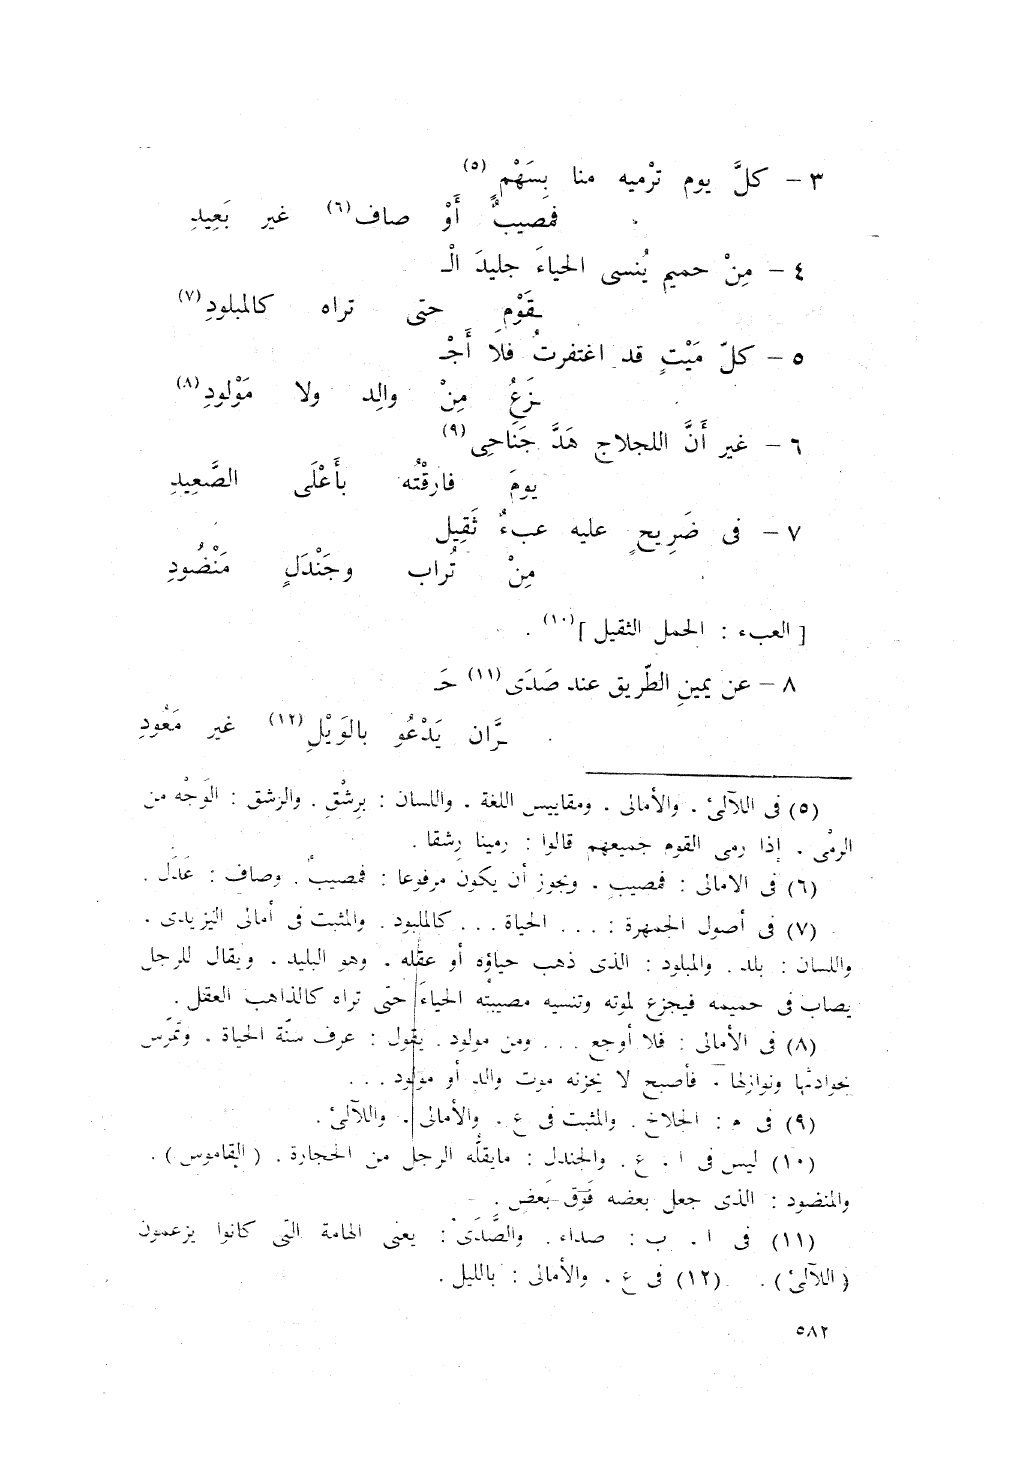 ٣ – كلَّ يوم ترْميه منا بِسَهْمٍ (٥)
فمصيبٌ أَوْ صاف (٦) غير بَعِيدِ
٤ – مِنْ حميم يُنسى الحياءَ جليدَ الْـ
ـقَوْمِ حتى تراه كالمبلودِ (٧)
٥ – كلّ مَيْتٍ قد اغتفرتُ فلاَ أَجْـ
ـزَعُ مِنْ والِد ولا مَوْلودِ (٨)
٦ – غير أَنَّ اللجلاج هَدَّ جَنَاحِى (٩)
يومَ فارقْتُه بأَعْلَى الصَّعِيدِ
٧ – فى ضَرِيحٍ عليه عبءٌ ثَقِيل
مِنْ تُراب وجَنْدَلٍ مَنْضُودِ
[ العبء : الحمل الثقيل ] (١٠) .
٨ – عن يمينِ الطّريق عند صَدَى (١١) حَـ
ـرَّان يَدْعُو بالوَيْلِ (١٢) غير مَعُودِ
(٥) فى اللآلئ . والأمالى . ومقاييس اللغة . واللسان : بِرِشْقٍ . والرشق : الوَجْه من
الرمْى . إذا رمى القوم جميعهم قالوا : رمينا رِشقا .
(٦) فى الامالى : فمصيبٍ . ويجوز أن يكون مرفوعا : فمصيبٌ . وصاف : عَدَل .
(٧) فى أصول الجمهرة : ... الحياة ... كالملبود . والمثبت فى أمالى اليزيدى .
واللسان : بلد . والمبلود : الذى ذهب حياؤه أو عقله . وهو البليد . ويقال للرجل
يصاب فى حميمه فيجزع لموته وتنسيه مصيبتُه الحياءَ حتى تراه كالذاهب العقل .
(٨) فى الأمالى : فلا أوجع ... ومن مولود . يقول : عرف سنّة الحياة . وتمرّس
بحوادثها ونوازلها . فأصبح لا يحزنه موت والد أو مولود ...
(٩) فى م : الجلاخ . والمثبت فى ع . والأمالى . واللآلئ .
(١٠) ليس فى ا . ع . والجندل : مايقلُّه الرجل من الحجارة . ( القاموس ) .
والمنضود : الذى جعل بعضه فَوْق بَعض .
(١١) فى ا . ب : صداء . والصَّدَى : يعنى الهامة التى كانوا يزعمون
( اللآلئ ) . (١٢) فى ع . والأمالى : بالليل .
٥٨٢